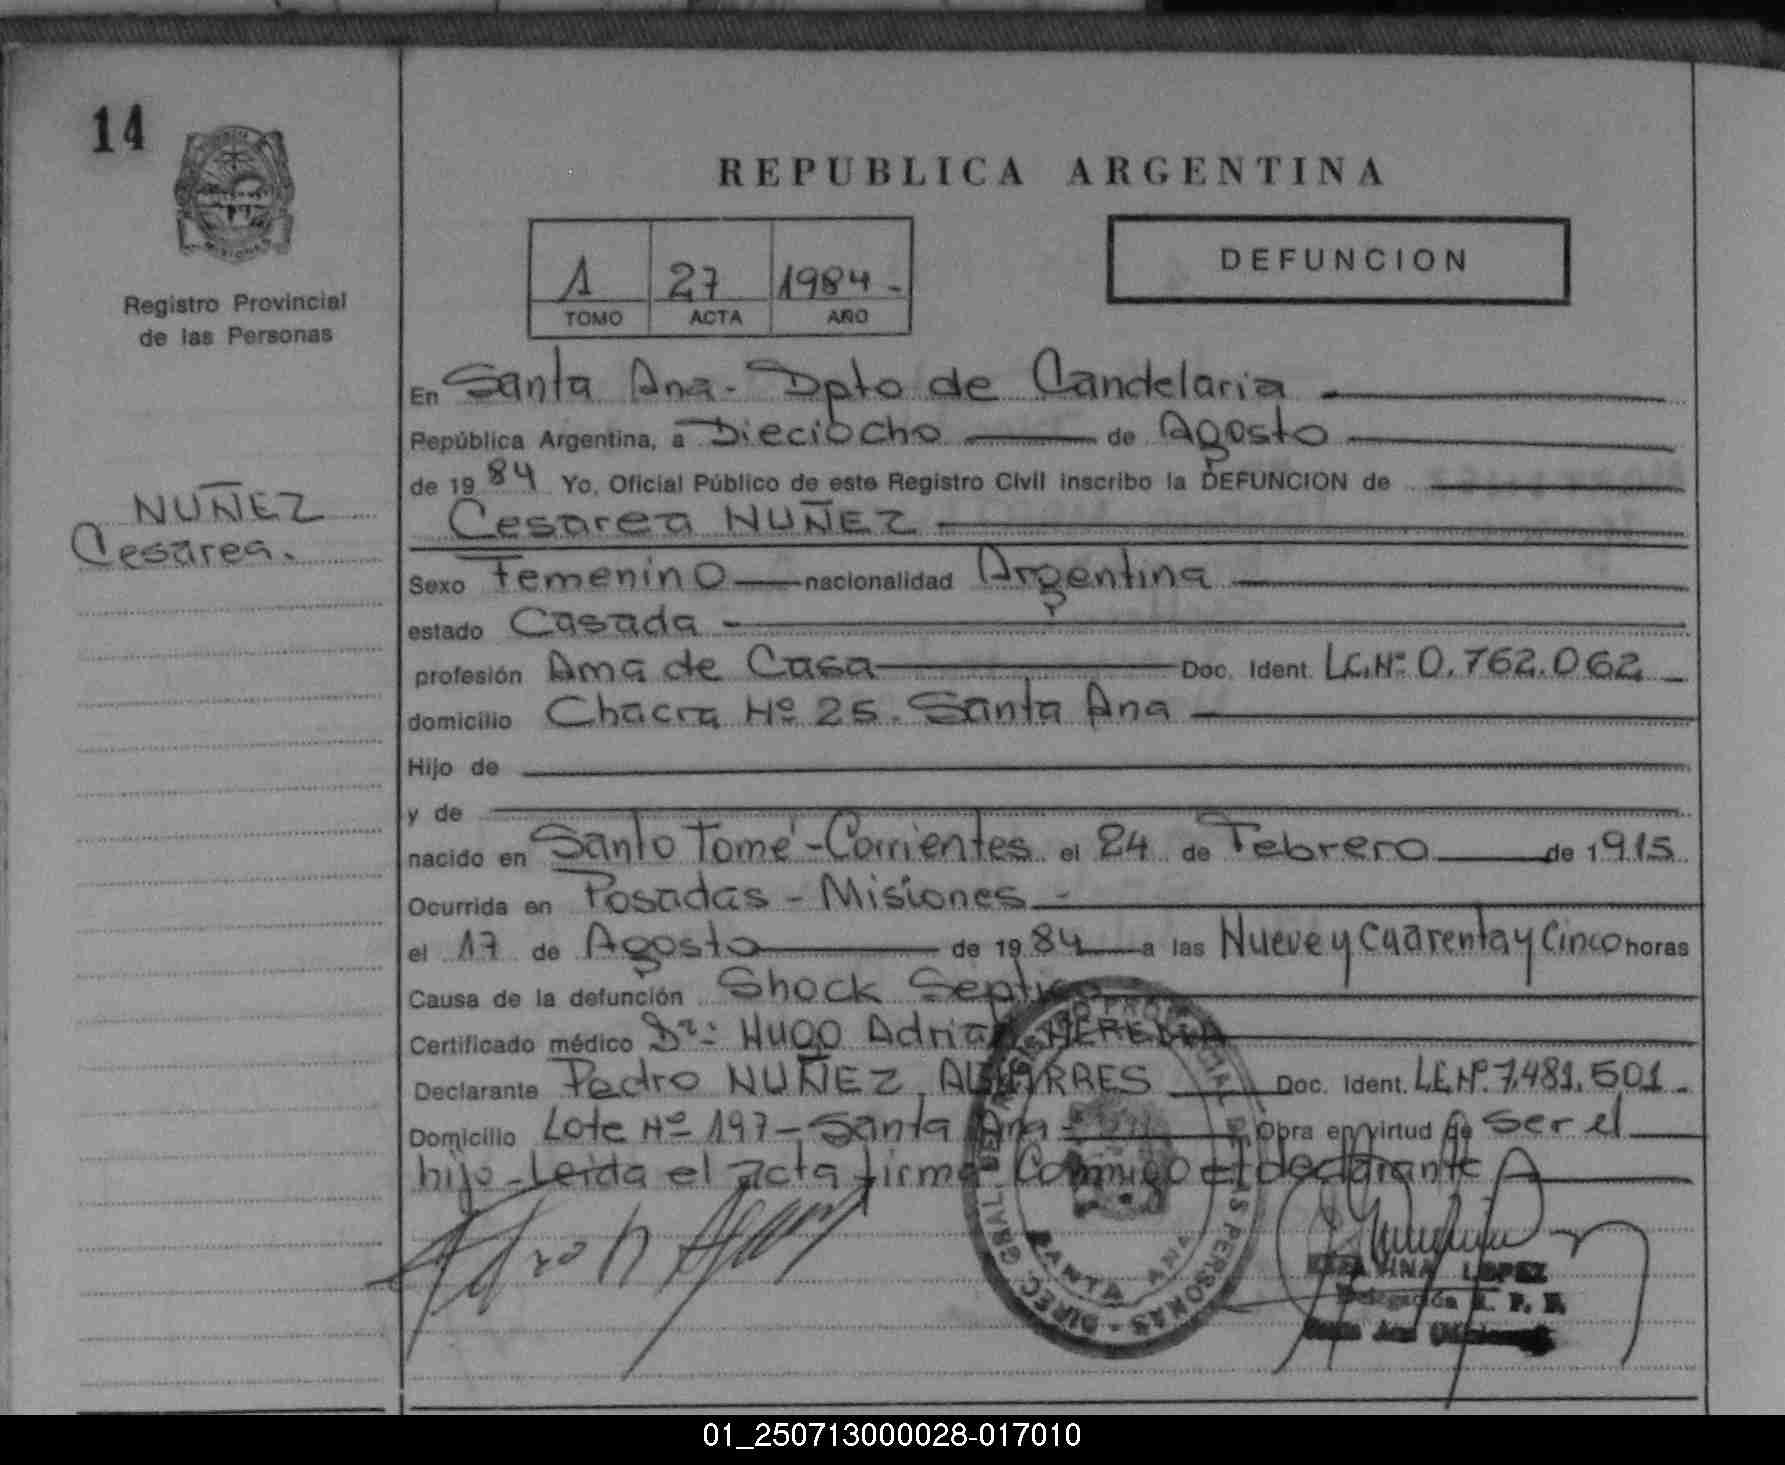 14
MISIONES
Registro Provincial
de las Personas
NUÑEZ
Cesarea.
REPUBLICA ARGENTINA
1 27 1984-
TOMO ACTA AÑO
DEFUNCION
En Santa Ana - Dpto de Candelaria
República Argentina, a Dieciocho de Agosto
de 1984 Yo, Oficial Público de este Registro Civil inscribo la DEFUNCION de
Cesarea NUÑEZ
Sexo Femenino nacionalidad Argentina
estado Casada -
profesión Ama de Casa Doc. Ident. LC.Nº 0.762.062
domicilio Chacra Nº 25. Santa Ana
Hijo de
y de
nacido en Santo Tomé - Corrientes el 24 de Febrero de 1915
Ocurrida en Posadas - Misiones -
el 17 de Agosto de 1984 a las Nueve y Cuarenta y Cinco horas
Causa de la defunción Shock Septico
Certificado médico Dr: Hugo Adrian HEREDIA
Declarante Pedro NUÑEZ Doc. Ident. LE.Nº 7.481.501
Domicilio Lote Nº 197 - Santa Ana - Obra en virtud de ser el
hijo - Leida el acta firma Conmigo el declarante
REGISTRO PROVINCIAL DE LAS PERSONAS - DIREC. GRAL.
SANTA ANA
LOPEZ
Delegación R. P. P.
Santa Ana (Misiones)
01_250713000028-017010